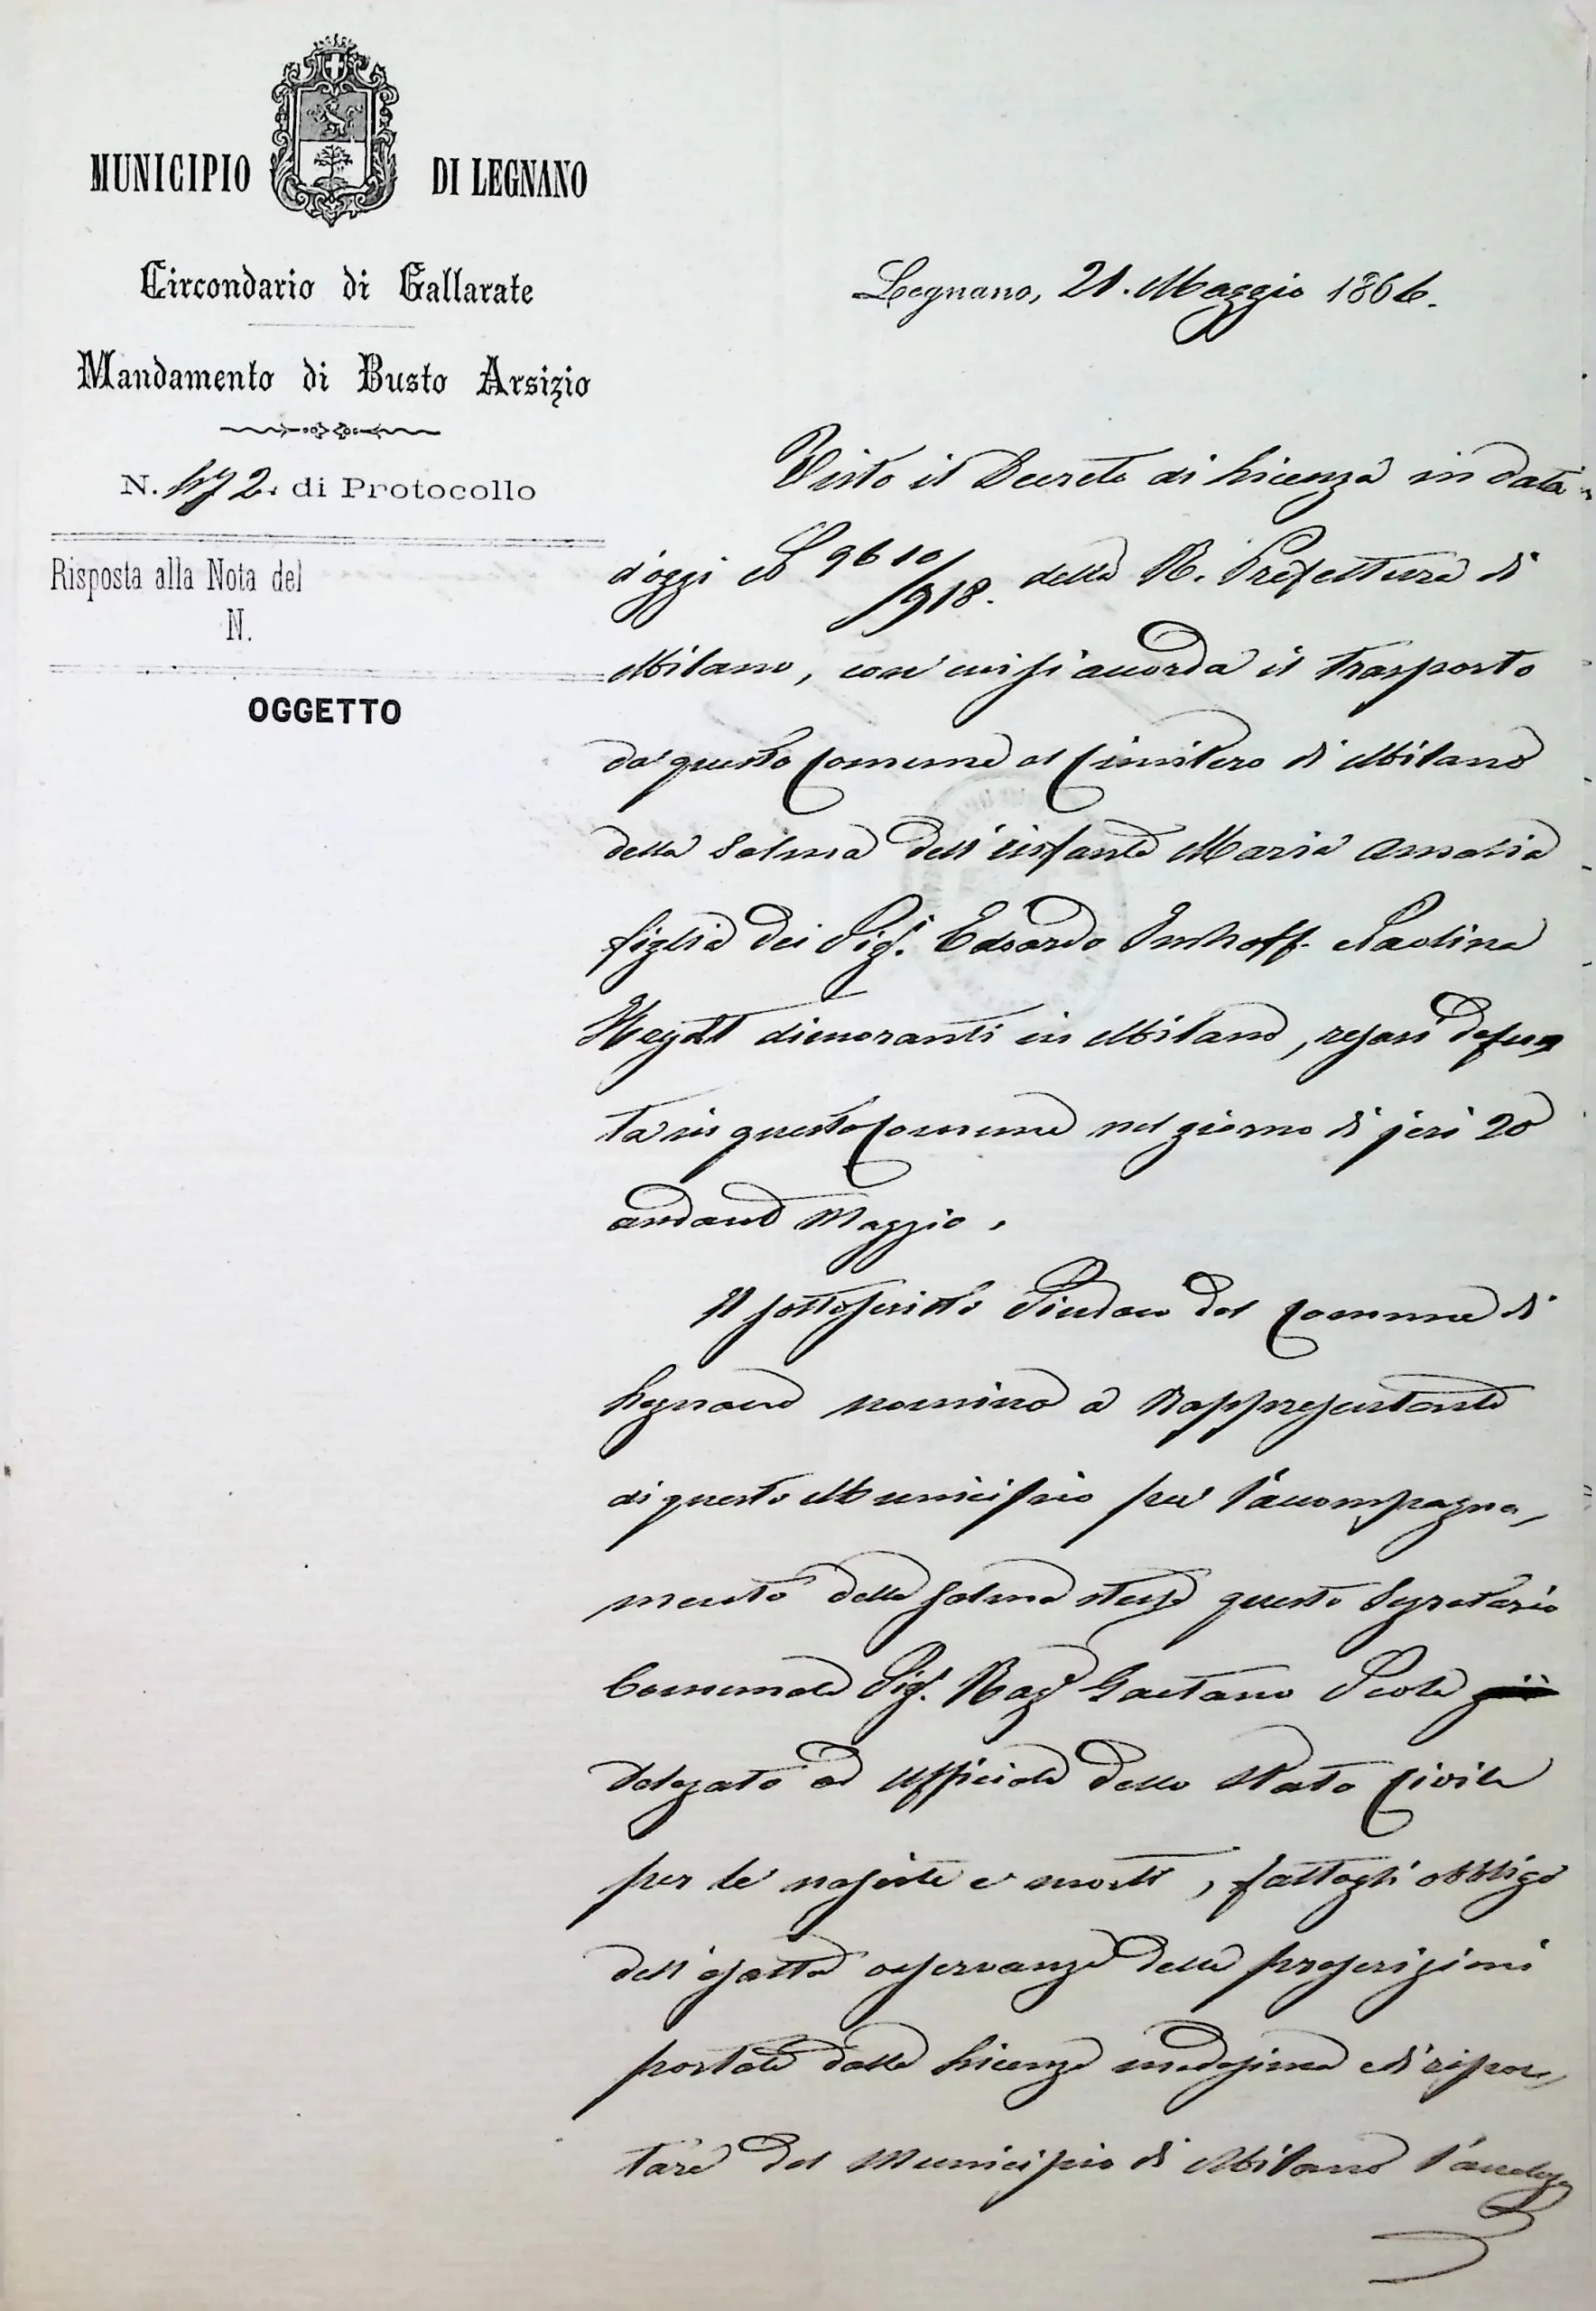 MUNICIPIO DI LEGNANO
Circondario di Gallarate
Mandamento di Busto Arsizio
N. 472. di Protocollo
Risposta alla Nota del
N.
OGGETTO
Legnano, 21. Maggio 1866.
Visto il Decreto di Licenza in data
d'oggi N. 9610/918. della R. Prefettura di
Milano, con cui si accorda il trasporto
da questo Comune al Cimitero di Milano
della Salma dell'infante Maria Amalia
figlia dei Sigi. Edoardo Imhoff e Paolina
dimoranti in Milano, resasi defun-
ta in questo Comune nel giorno di jeri 20
andante Maggio,
Il sottoscritto Sindaco del Comune di
Legnano nomina a Rappresentante
di questo Municipio per l'accompagna-
mento della Salma stessa questo Segretario
Comunale Sig. Rag. Gaetano
delegato ad Ufficiale dello Stato Civile
per le nascite e morti, fattogli obbligo
dell'esatta osservanza delle prescrizioni
portate dalla Licenza medesima e di ripor-
tare dal Municipio di Milano